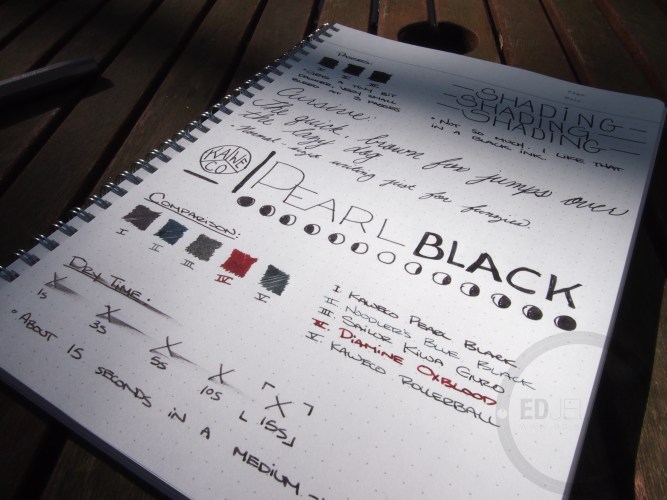 SHADING
SHADING
SHADING
• NOT SO MUCH. I LIKE THAT
IN A BLACK INK
Cursive:
The quick brown fox jumps over
the lazy dog
writing just for
KAWECO
PEARL BLACK
COMPARISON:
I II III IV V
I. KAWECO PEARL BLACK
II. NOODLER'S BLUE BLACK
III. SAILOR KIWA GURO
IV. DIAMINE OXBLOOD
V. KAWECO ROLLERBALL
DRY TIME.
X X X X X
1s 3s 5s 10s 15s
• ABOUT 15 SECONDS IN A MEDIUM
EDJEL